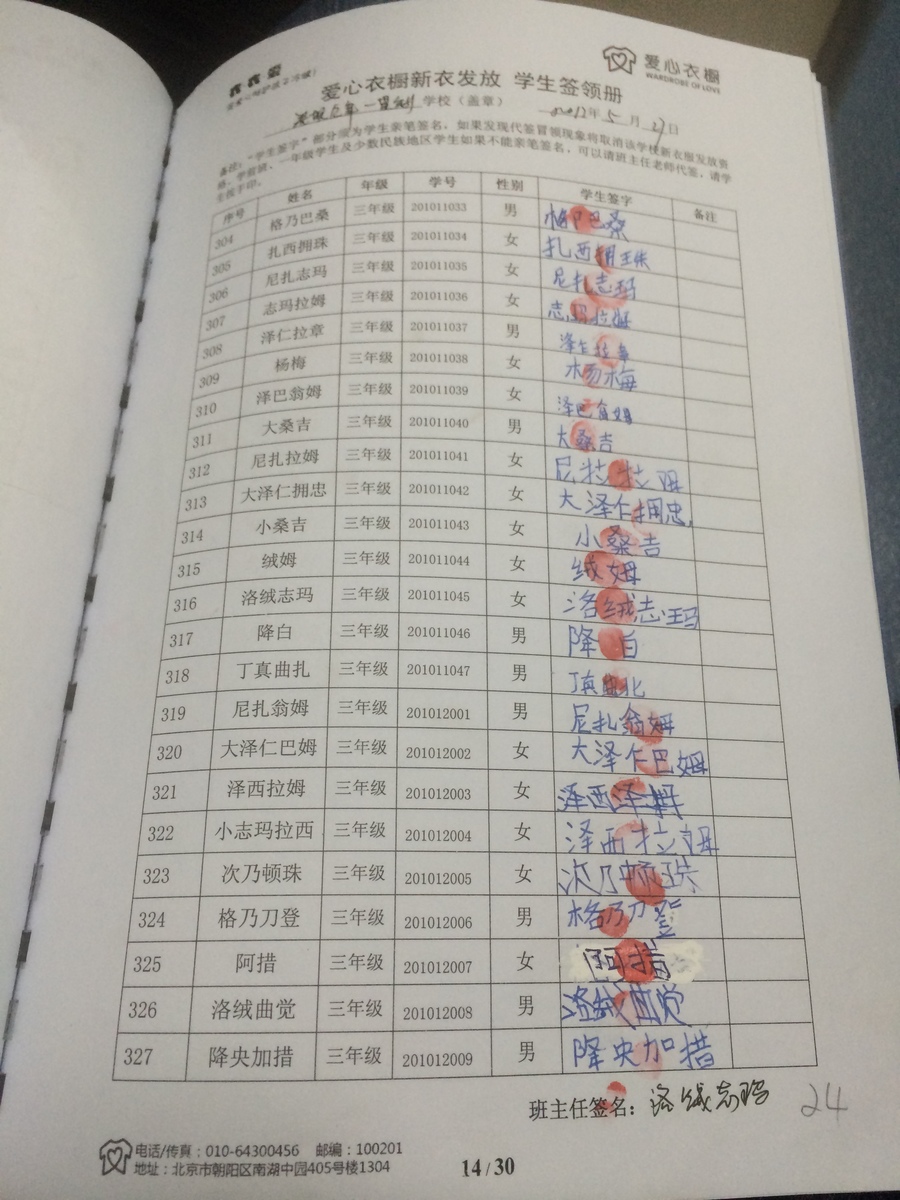 衣衣爱
爱心衣橱
WARDROBE OF LOVE
爱心衣橱新衣发放 学生签领册
学校（盖章） 2012年5月27日
备注："学生签字"部分须为学生亲笔签名，如果发现代签冒领现象将取消该学校新衣橱发放资
格，学前班、一年级学生及少数民族地区学生如果不能亲笔签名，可以请班主任老师代签，请学
生按手印。
序号 姓名 年级 学号 性别 学生签字 备注
304 格乃巴桑 三年级 201011033 男 巴桑
305 扎西拥珠 三年级 201011034 女 扎西拥珠
306 尼扎志玛 三年级 201011035 女 尼扎志玛
307 志玛拉姆 三年级 201011036 女 志玛拉姆
308 泽仁拉章 三年级 201011037 男 泽仁拉章
309 杨梅 三年级 201011038 女 杨梅
310 泽巴翁姆 三年级 201011039 女 泽巴翁姆
311 大桑吉 三年级 201011040 男 大桑吉
312 尼扎拉姆 三年级 201011041 女 尼拉拉姆
313 大泽仁拥忠 三年级 201011042 女 大泽仁拥忠
314 小桑吉 三年级 201011043 女 小桑吉
315 绒姆 三年级 201011044 女 绒姆
316 洛绒志玛 三年级 201011045 女 洛绒志玛
317 降白 三年级 201011046 男 降白
318 丁真曲扎 三年级 201011047 男 丁真曲北
319 尼扎翁姆 三年级 201012001 男 尼扎翁姆
320 大泽仁巴姆 三年级 201012002 女 大泽仁巴姆
321 泽西拉姆 三年级 201012003 女 泽西泽姆
322 小志玛拉西 三年级 201012004 女 泽西拉姆
323 次乃顿珠 三年级 201012005 女 次乃顿珠
324 格乃刀登 三年级 201012006 男 格乃刀登
325 阿措 三年级 201012007 女 阿措
326 洛绒曲觉 三年级 201012008 男 洛绒曲觉
327 降央加措 三年级 201012009 男 降央加措
班主任签名：洛绒志玛 24
电话/传真：010-64300456 邮编：100201
地址：北京市朝阳区南湖中园405号楼1304
14/30